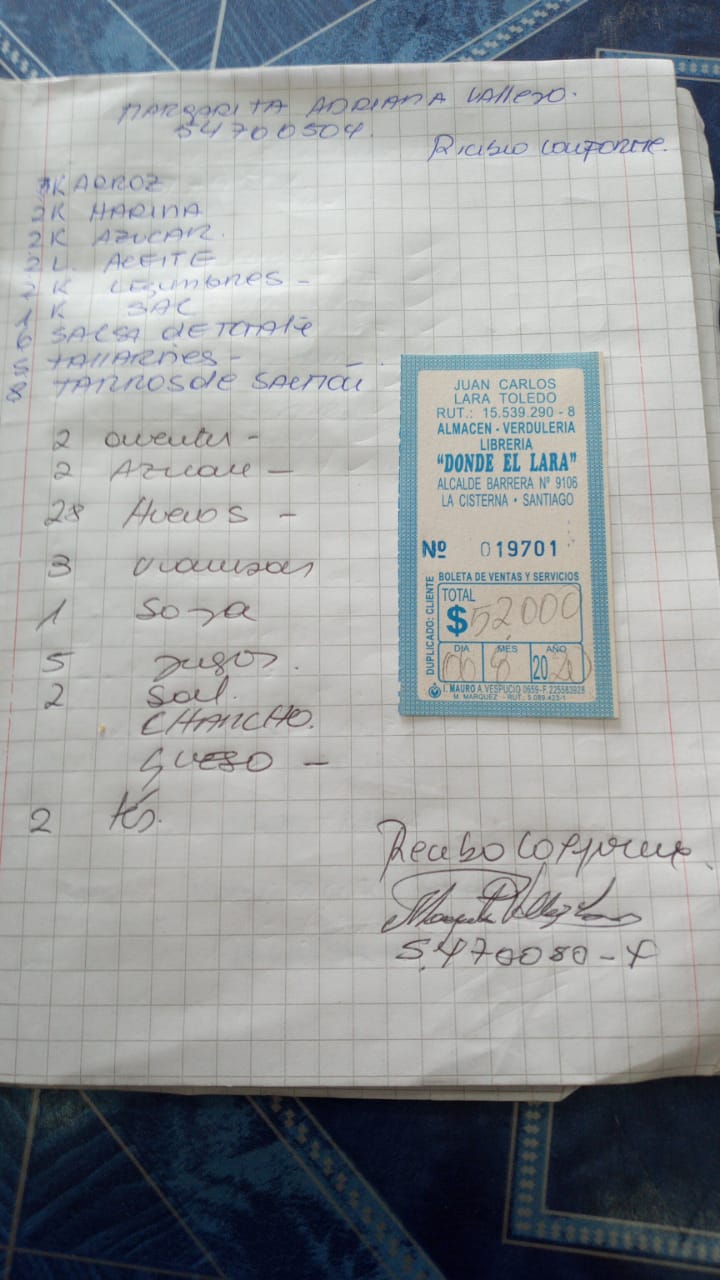 MARGARITA ADRIANA VALLEJO.
54700504.
Recibo Conforme.
K ARROZ
2K HARINA
2K AZUCAR.
2L. ACEITE
2K LEGUMBRES -
1K SAL
6 SALSA DE TOMATE
5 TALLARINES -
8 TARROS de SALMON
2 -
2 Azucar -
28 Huevos -
3
1 Soya
5 Jugos.
2 Sal.
CHANCHO.
QUESO -
2 tés.
Recibo Conforme.
5.470080-4
JUAN CARLOS
LARA TOLEDO
RUT.: 15.539.290 - 8
ALMACEN - VERDULERIA
LIBRERIA
"DONDE EL LARA"
ALCALDE BARRERA Nº 9106
LA CISTERNA • SANTIAGO
Nº 019701
BOLETA DE VENTAS Y SERVICIOS
DUPLICADO: CLIENTE
TOTAL
$ 52.000
DIA MES AÑO
06 8 2020
I. MAURO A. VESPUCIO 0659 - F. 225583928
M. MARQUEZ - RUT.: 5.089.433-1